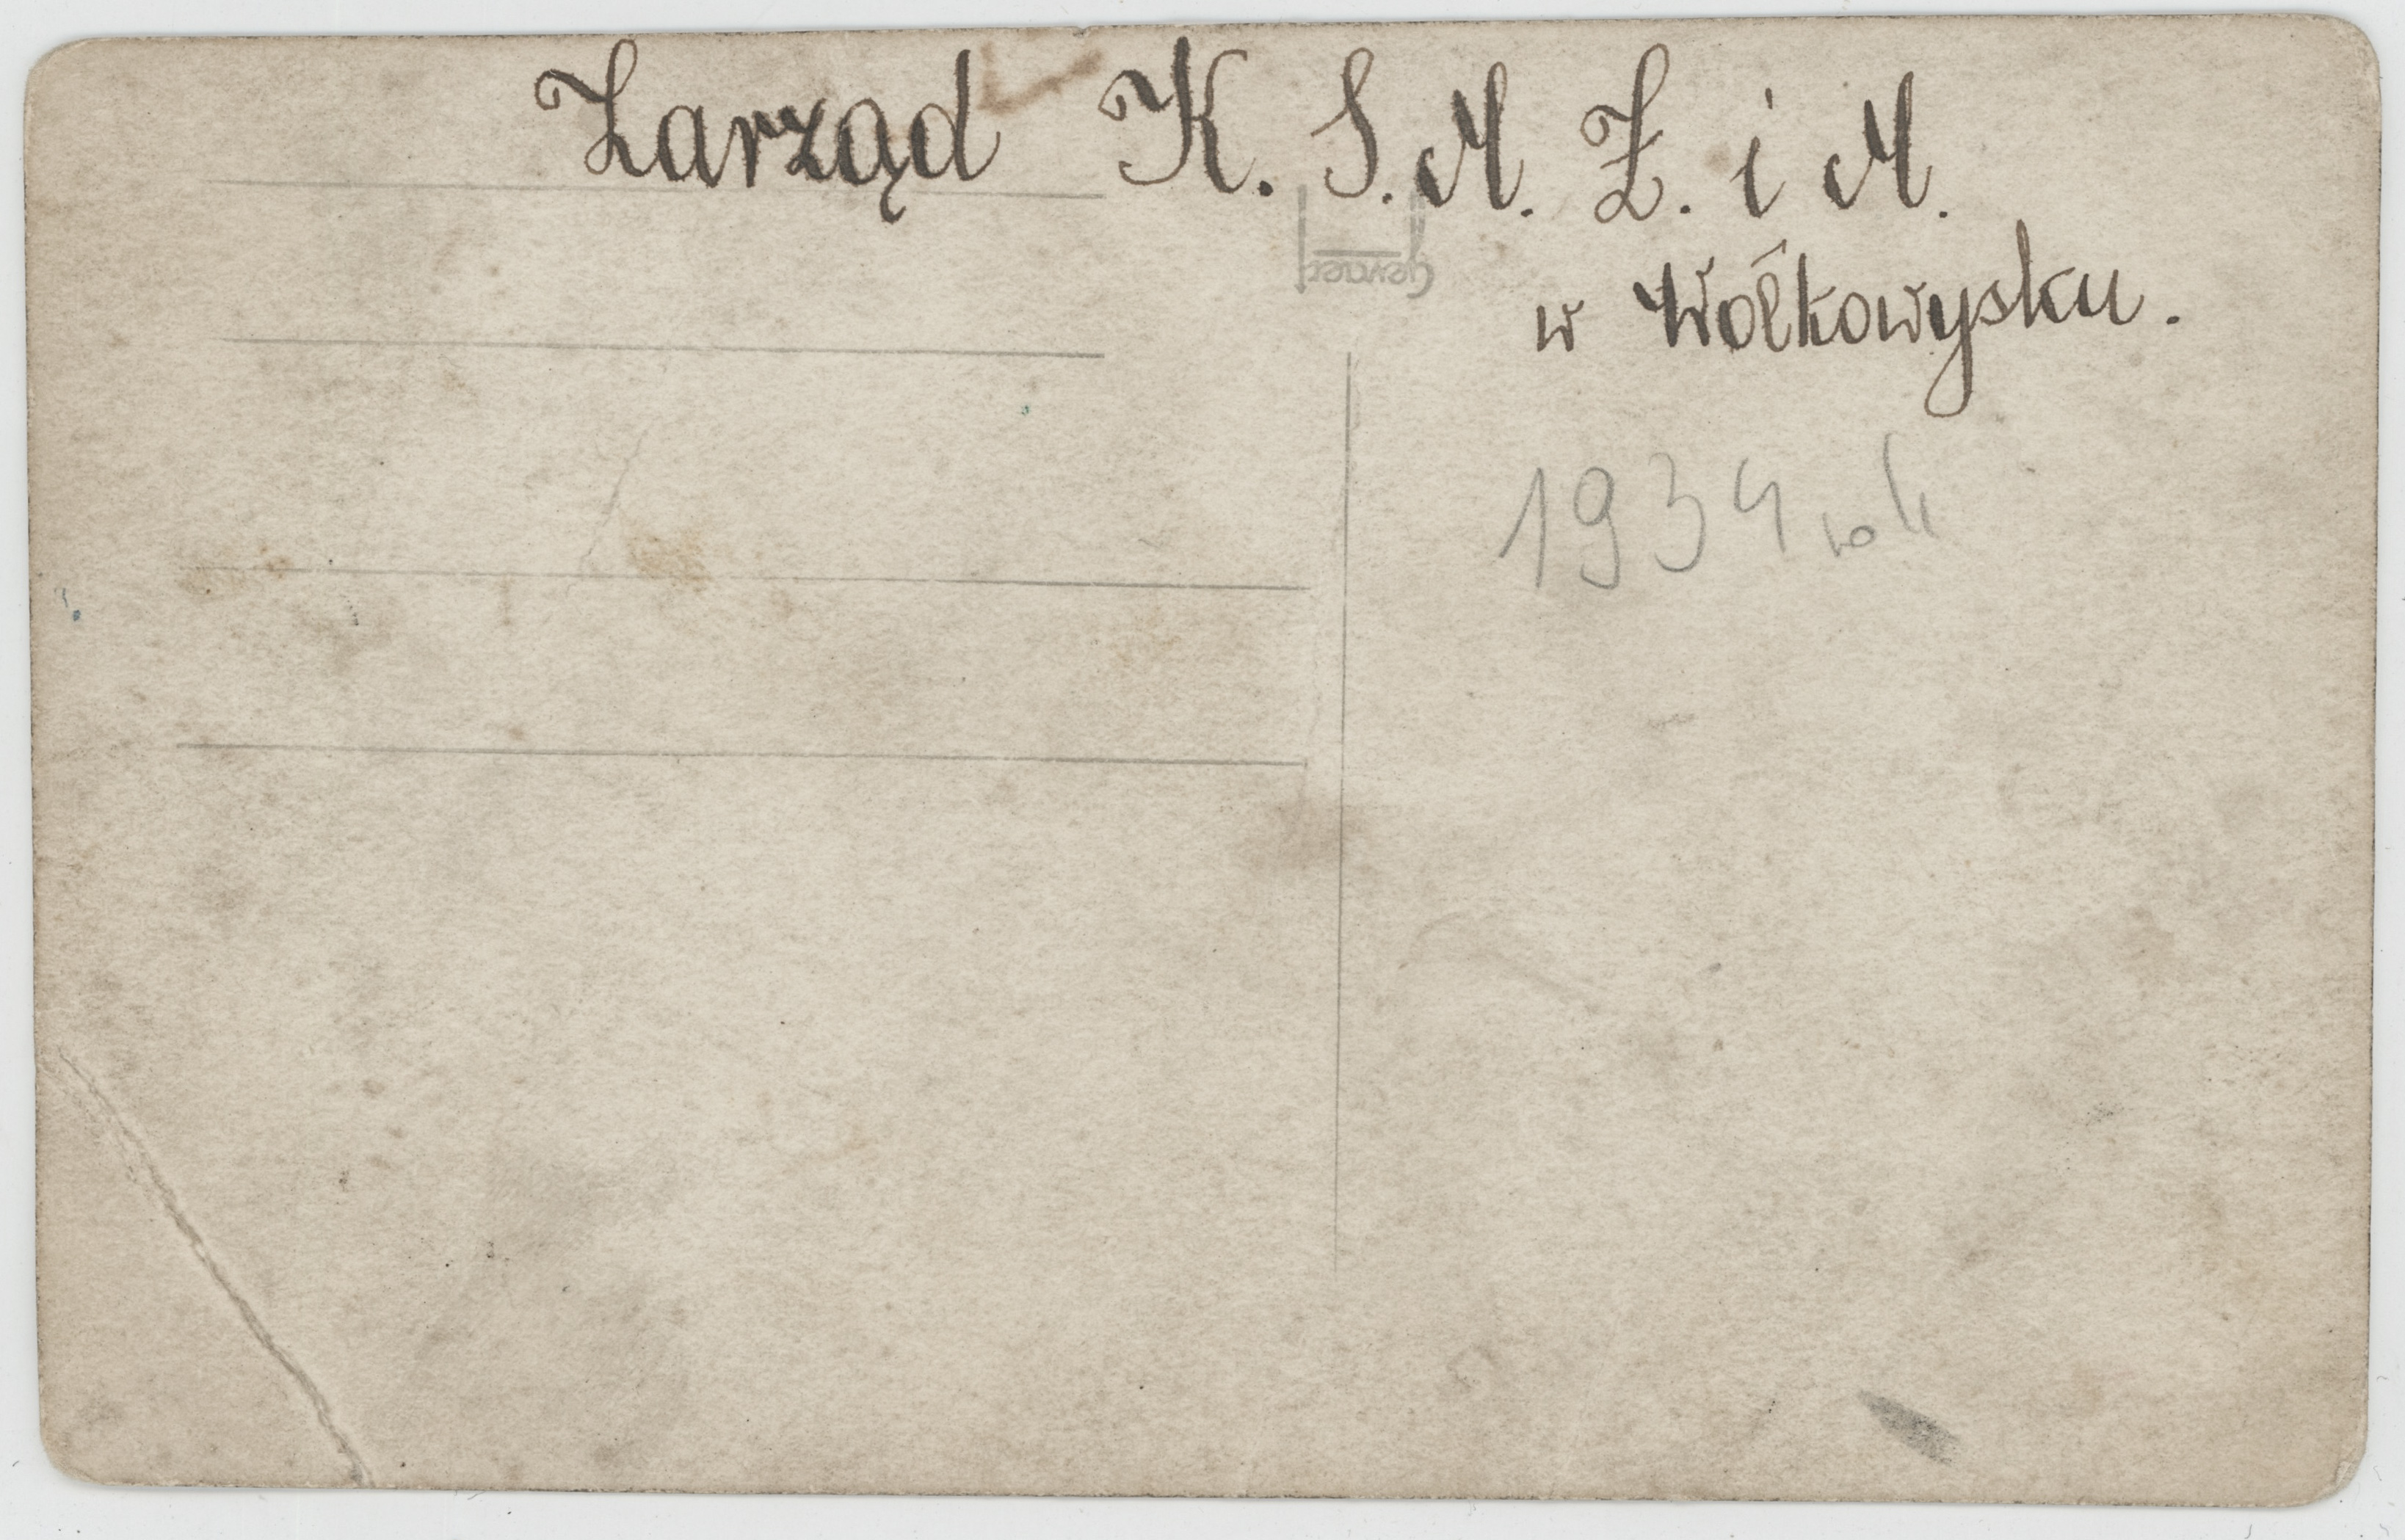 Zarząd K. S. M. Ż. i M.
w Wołkowysku.
1934 rok
Gevaert